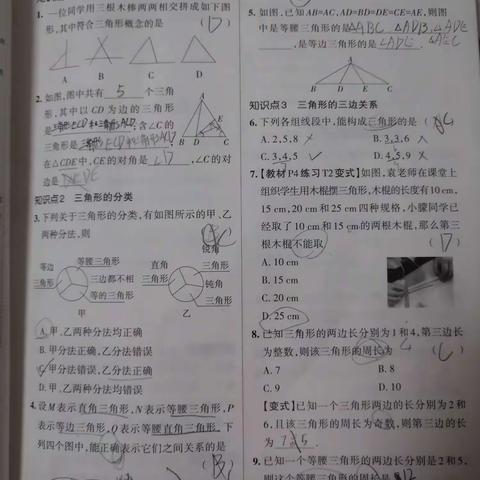 1. 一位同学用三根木棒两两相交拼成如下图
形,其中符合三角形概念的是 (D)
A B C D
2. 如图,图中共有 5 个三角
形,其中以 CD 为边的三角形
是三角形ECD和三角形ACD,含∠C的
三角形是
在△CDE中,CE的对角是 ∠D ,∠C的对
边是 DE
知识点2 三角形的分类
3. 下列关于三角形的分类,有如图所示的甲、乙
两种分法,则
等边三角形
等腰三角形
三边都不相等的三角形
甲
直角三角形
锐角三角形
钝角三角形
乙
A. 甲、乙两种分法均正确
B. 甲分法正确,乙分法错误
C. 甲分法错误,乙分法正确
D. 甲、乙两种分法均错误
4. 设M表示直角三角形,N表示等腰三角形,P
表示等边三角形,Q表示等腰直角三角形.下
列四个图中,能正确表示它们之间关系的是
(B)
5. 如图,已知AB=AC,AD=BD=DE=CE=AE,则图
中是等腰三角形的是△ABC △ADB △ADE
△AEC ,是等边三角形的是 △ADE .
A
B D E C
知识点3 三角形的三边关系
6. 下列各组线段中,能构成三角形的是 (C)
A. 2,5,8 B. 3,3,6
C. 3,4,5 D. 4,5,9
7. 【教材P4练习T2变式】如图,袁老师在课堂上
组织学生用木棍摆三角形,木棍的长度有10 cm,
15 cm,20 cm和25 cm四种规格,小朦同学已
经取了10 cm和15 cm的两根木棍,那么第三
根木棍不能取 (D)
A. 10 cm
B. 15 cm
C. 20 cm
D. 25 cm
8. 已知三角形的两边长分别为1和4,第三边长
为整数,则该三角形的周长为 (C)
A. 7 B. 8
C. 9 D. 10
【变式】已知一个三角形两边的长分别为2和
6,且该三角形的周长为奇数,那么第三边的长
为 7或5 .
9. 已知一个等腰三角形的两边长分别是2和5,
则这个等腰三角形的周长是 12